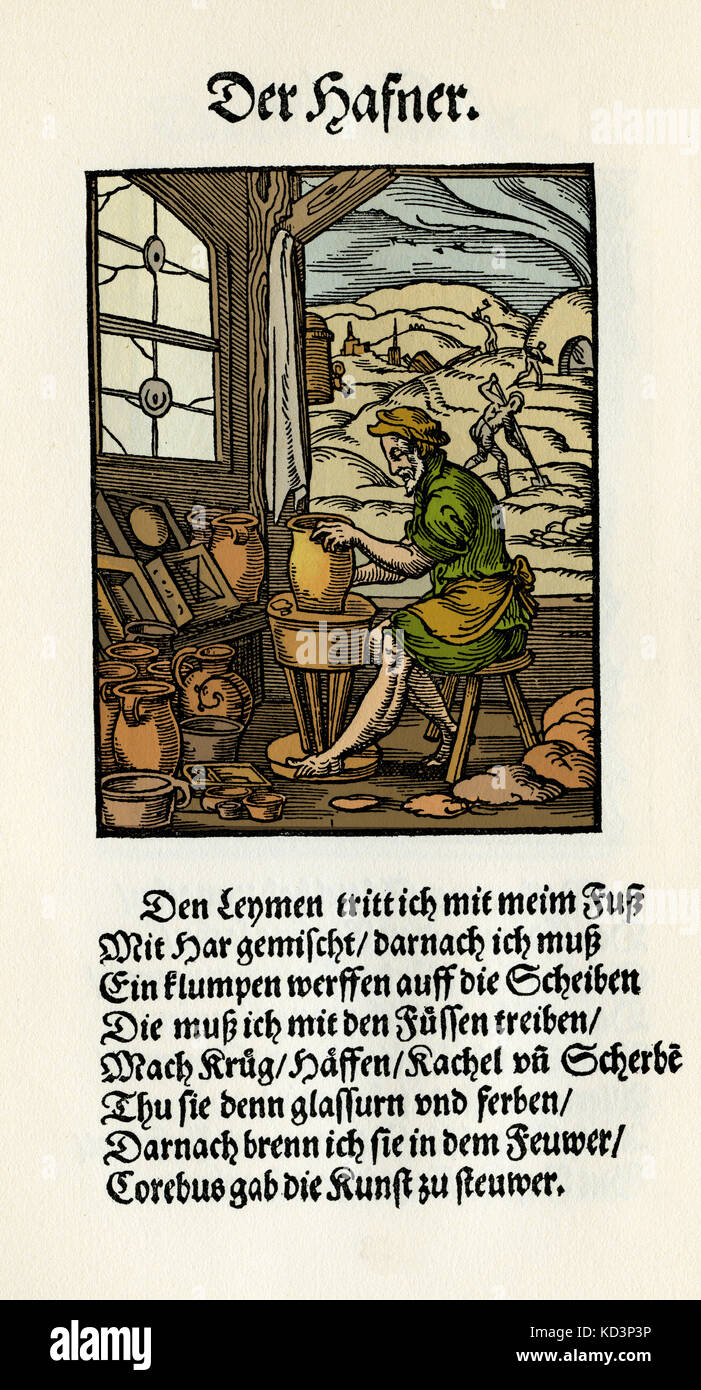 Der Hafner.
Den Leymen tritt ich mit meim Fuß
Mit Har gemischt/ darnach ich muß
Ein klumpen werffen auff die Scheiben
Die muß ich mit den Fuͤssen treiben/
Mach Kruͤg/ Haͤffen/ Kachel vn̄ Scherbē
Thu sie denn glassurn vnd ferben/
Darnach brenn ich sie in dem Feuwer/
Corebus gab die Kunst zu steuwer.
alamy
alamy
Image ID: KD3P3P
www.alamy.com